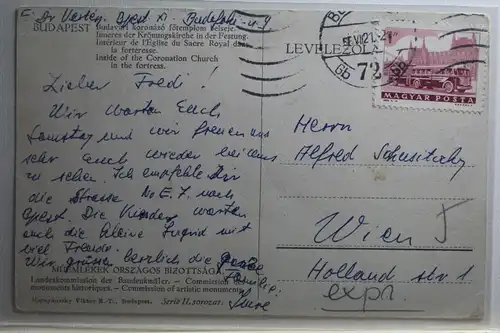 BUDAPEST
Budavári koronázó főtemplom belseje.
Inneres der Krönungskirche in der Festung.
Intérieur de l'Église du Sacre Royal dans
la forteresse.
Inside of the Coronation Church
in the fortress.
LEVELEZŐLA
72
MAGYAR POSTA
Lieber Fredi!
Wir warten Euch
Samstag und wir freuen uns
sehr Euch wieder bei uns
zu sehen. Ich empfehle Dir
die Strasse No E.7. nach
Bpest. Die Kinder warten
auch die kleine Ingrid mit
viel Freude.
Wir grüssen herzlich die ganze
Familie.
Herrn
Alfred
Wien
Holland str 1
expr.
MŰEMLÉKEK ORSZÁGOS BIZOTTSÁGA
Landeskommission der Baudenkmäler. — Commission des
monuments historiques. — Commission of artistic monuments.
Serie II. sorozat.